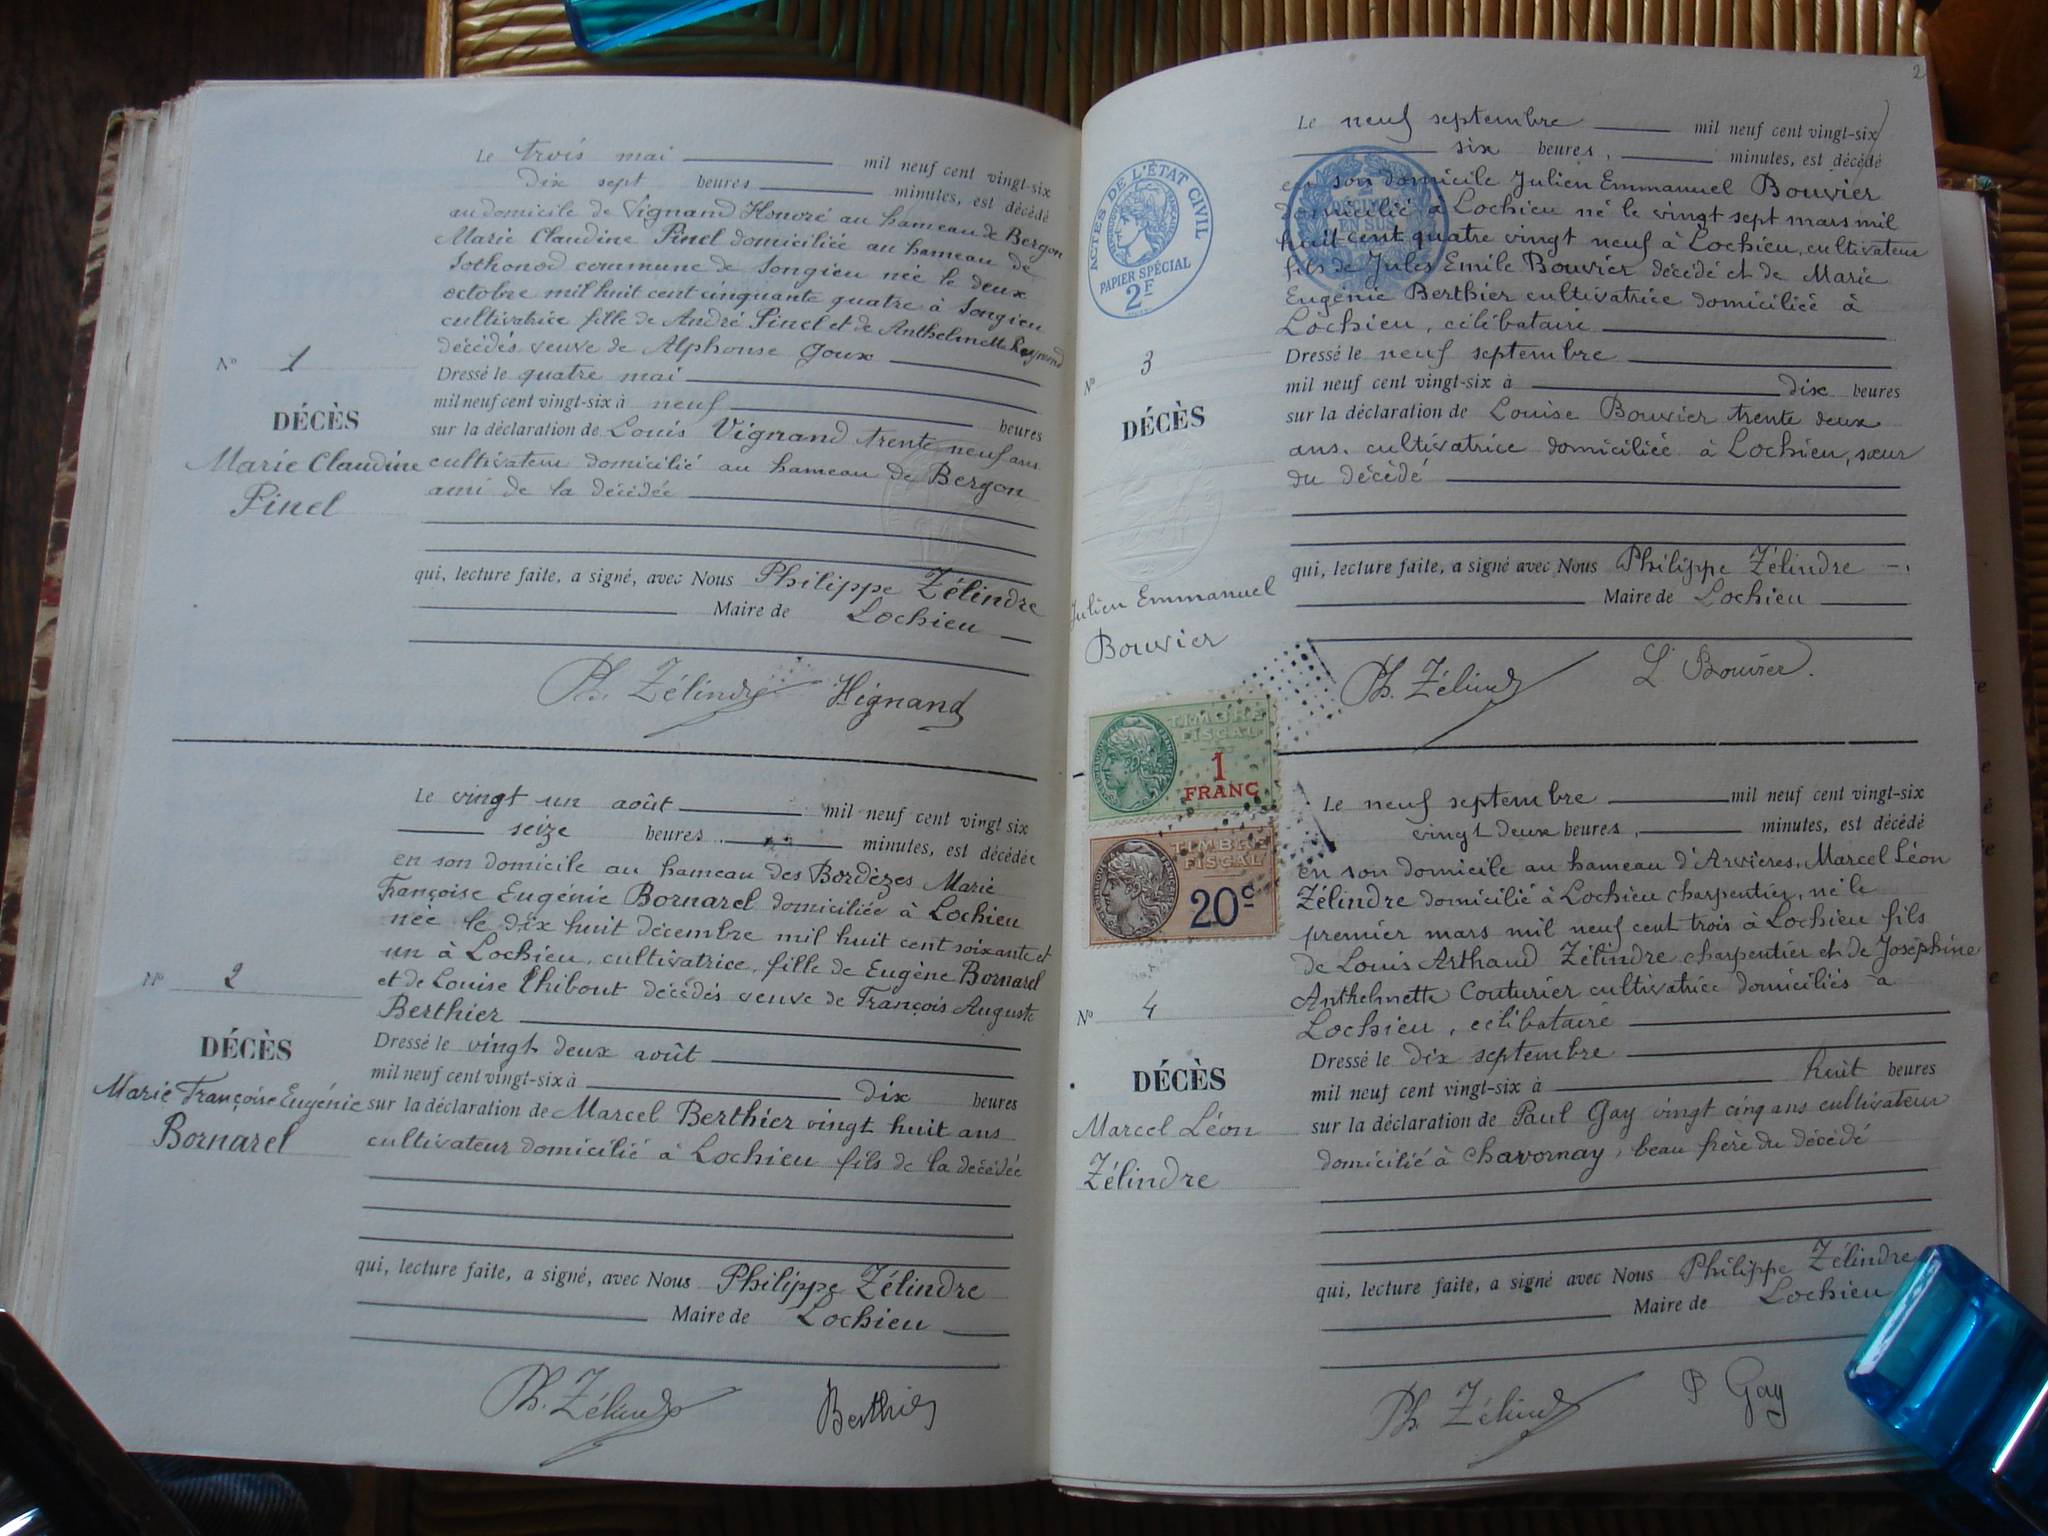 Le trois mai mil neuf cent vingt-six
dix sept heures minutes, est décédé
au domicile de Vignand Honoré au hameau de Bergon
Marie Claudine Pinel domiciliée au hameau de
Sothonod commune de Songieu née le deux
octobre mil huit cent cinquante quatre à Songieu
cultivatrice fille de André Pinel et de Anthelmette Reymond
décédés veuve de Alphonse Goux
Dressé le quatre mai
mil neuf cent vingt-six à neuf heures
sur la déclaration de Louis Vignand trente neuf ans
cultivateur domicilié au hameau de Bergon
ami de la décédée
qui, lecture faite, a signé, avec Nous Philippe Zélindre
Maire de Lochieu
Ph. Zélindre Vignand
N° 1
DÉCÈS
Marie Claudine
Pinel
Le vingt un août mil neuf cent vingt six
seize heures minutes, est décédée
en son domicile au hameau des Bordèzes Marie
Françoise Eugénie Bornarel domiciliée à Lochieu
née le dix huit décembre mil huit cent soixante et
un à Lochieu, cultivatrice, fille de Eugène Bornarel
et de Louise Thibout décédés veuve de François Auguste
Berthier
Dressé le vingt deux août
mil neuf cent vingt-six à dix heures
sur la déclaration de Marcel Berthier vingt huit ans
cultivateur domicilié à Lochieu fils de la décédée
qui, lecture faite, a signé, avec Nous Philippe Zélindre
Maire de Lochieu
Ph. Zélindre Berthier
N° 2
DÉCÈS
Marie Françoise Eugénie
Bornarel
2
ACTES DE L'ÉTAT CIVIL
PAPIER SPÉCIAL
2F
2
DÉCIMES
EN SUS
Le neuf septembre mil neuf cent vingt-six
six heures, minutes, est décédé
en son domicile Julien Emmanuel Bouvier
domicilié à Lochieu né le vingt sept mars mil
huit cent quatre vingt neuf à Lochieu, cultivateur
fils de Jules Emile Bouvier décédé et de Marie
Eugénie Berthier cultivatrice domiciliée à
Lochieu, célibataire
Dressé le neuf septembre
mil neuf cent vingt-six à dix heures
sur la déclaration de Louise Bouvier trente deux
ans, cultivatrice domiciliée à Lochieu, sœur
du décédé
qui, lecture faite, a signé avec Nous Philippe Zélindre
Maire de Lochieu
Ph. Zélindre L Bouvier.
N° 3
DÉCÈS
Julien Emmanuel
Bouvier
TIMBRE
FISCAL
1
FRANC
TIMBRE
FISCAL
20c
Le neuf septembre mil neuf cent vingt-six
vingt deux heures, minutes, est décédé
en son domicile au hameau d'Arvières, Marcel Léon
Zélindre domicilié à Lochieu charpentier, né le
premier mars mil neuf cent trois à Lochieu fils
de Louis Arthaud Zélindre charpentier et de Joséphine
Anthelmette Couturier cultivatrice domiciliés à
Lochieu, célibataire
Dressé le dix septembre
mil neuf cent vingt-six à huit heures
sur la déclaration de Paul Gay vingt cinq ans cultivateur
domicilié à Chavornay, beau frère du décédé
qui, lecture faite, a signé avec Nous Philippe Zélindre
Maire de Lochieu
Ph Zélindre P Gay
N° 4
DÉCÈS
Marcel Léon
Zélindre